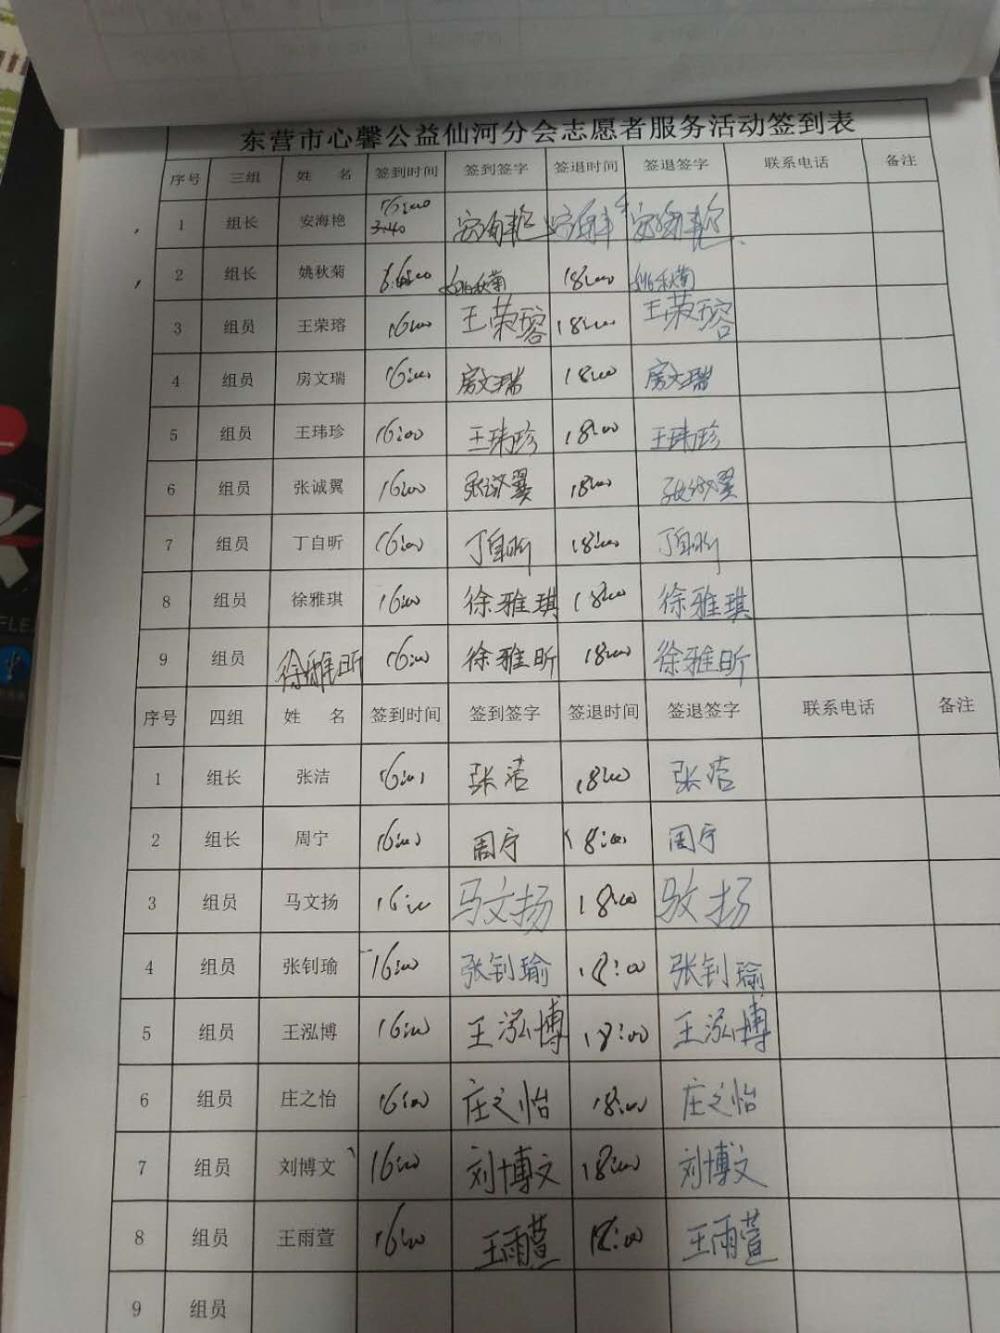 东营市心馨公益仙河分会志愿者服务活动签到表
序号 三组 姓 名 签到时间 签到签字 签退时间 签退签字 联系电话 备注
1 组长 安海艳 16:00 3:40 安海艳 安海艳
2 组长 姚秋菊 姚秋菊 18:00 姚秋菊
3 组员 王荣瑢 16:00 王荣瑢 18:00 王荣瑢
4 组员 房文瑞 16:00 房文瑞 18:00 房文瑞
5 组员 王玮珍 16:00 王玮珍 18:00 王玮珍
6 组员 张诚翼 16:00 张诚翼 18:00 张诚翼
7 组员 丁自昕 16:00 丁自昕 18:00 丁自昕
8 组员 徐雅琪 16:00 徐雅琪 18:00 徐雅琪
9 组员 徐雅昕 16:00 徐雅昕 18:00 徐雅昕
序号 四组 姓 名 签到时间 签到签字 签退时间 签退签字 联系电话 备注
1 组长 张洁 16:00 张洁 18:00 张洁
2 组长 周宁 16:00 周宁 18:00 周宁
3 组员 马文扬 16:00 马文扬 18:00 马文扬
4 组员 张钊瑜 16:00 张钊瑜 18:00 张钊瑜
5 组员 王泓博 16:00 王泓博 18:00 王泓博
6 组员 庄之怡 16:00 庄之怡 18:00 庄之怡
7 组员 刘博文 16:00 刘博文 18:00 刘博文
8 组员 王雨萱 16:00 王雨萱 18:00 王雨萱
9 组员